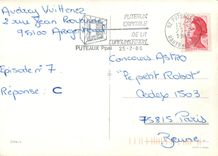 Audrey Vuittenez
2 rue Jean Bouvri
95100 Argenteuil
PUTEAUX
CAPITALE
DE LA
PUTEAUX Ppal 25-2-85
Episode n° 7
Réponse : C
Concours Astro
"Le petit Robot"
Cedex 1503
75815 Paris